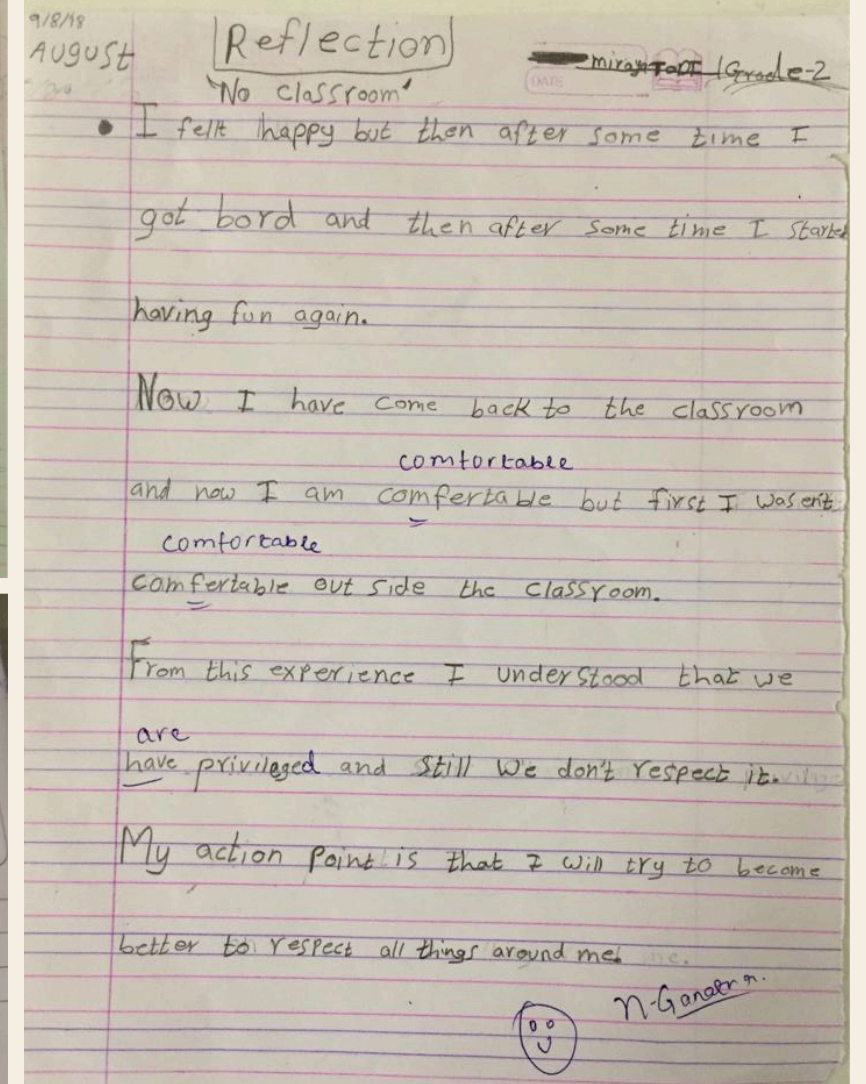 9/8/18
AUGUST
Reflection
miraya TODI | Grade-2
DATE
"No classroom"
• I felt happy but then after some time I
got bord and then after some time I started
having fun again.
Now I have come back to the classroom
comfortable
and now I am comfertable but first I wasen't
comfortable
comfertable out side the classroom.
From this experience I understood that we
are
have privileged and still we don't respect it.
My action point is that I will try to become
better to respect all things around me.